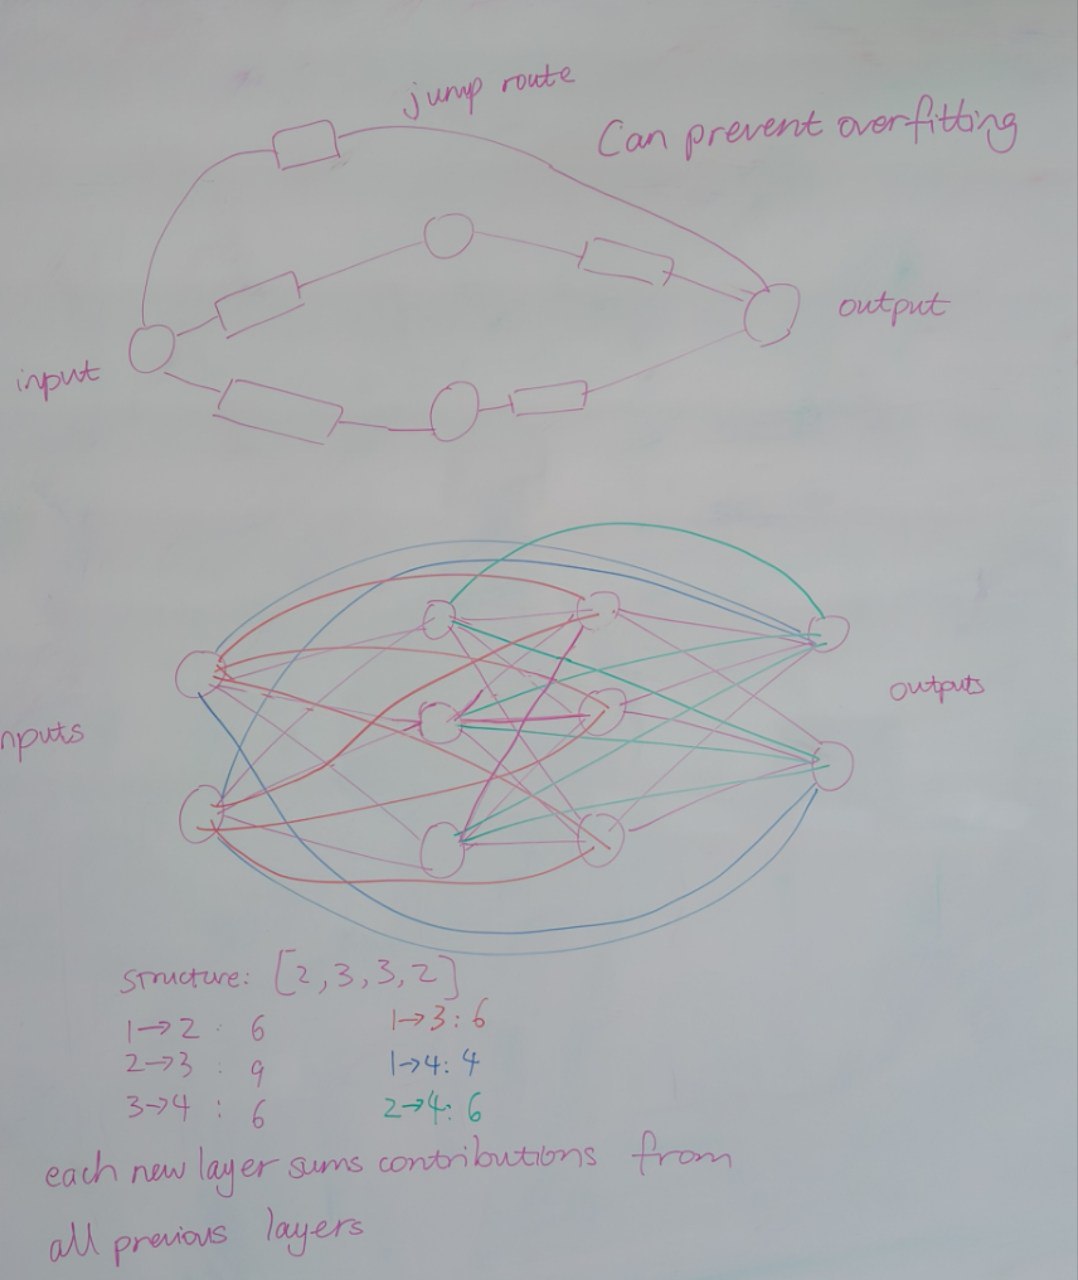 jump route
Can prevent overfitting
output
input
nputs
outputs
structure: [2,3,3,2]
1→2 : 6
1→3: 6
2→3 : 9
1→4: 4
3→4 : 6
2→4: 6
each new layer sums contributions from
all previous layers